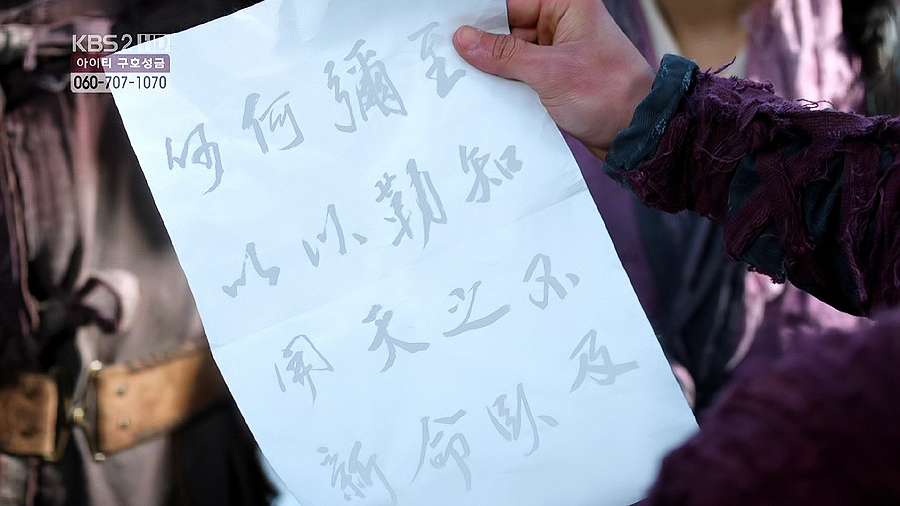 KBS2 HD
아이티 구호성금
060-707-1070
至知不及
彌勒之臥
何以天命
以開新